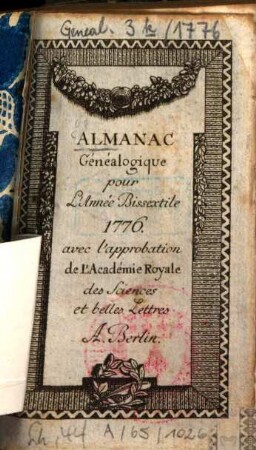 Geneal. 3 /1776
ALMANAC
Généalogique
pour
L'Année Bissextile
1776.
avec l'approbation
de L'Académie Royale
des Sciences
et belles Lettres
A. Berlin.
A/65/1026